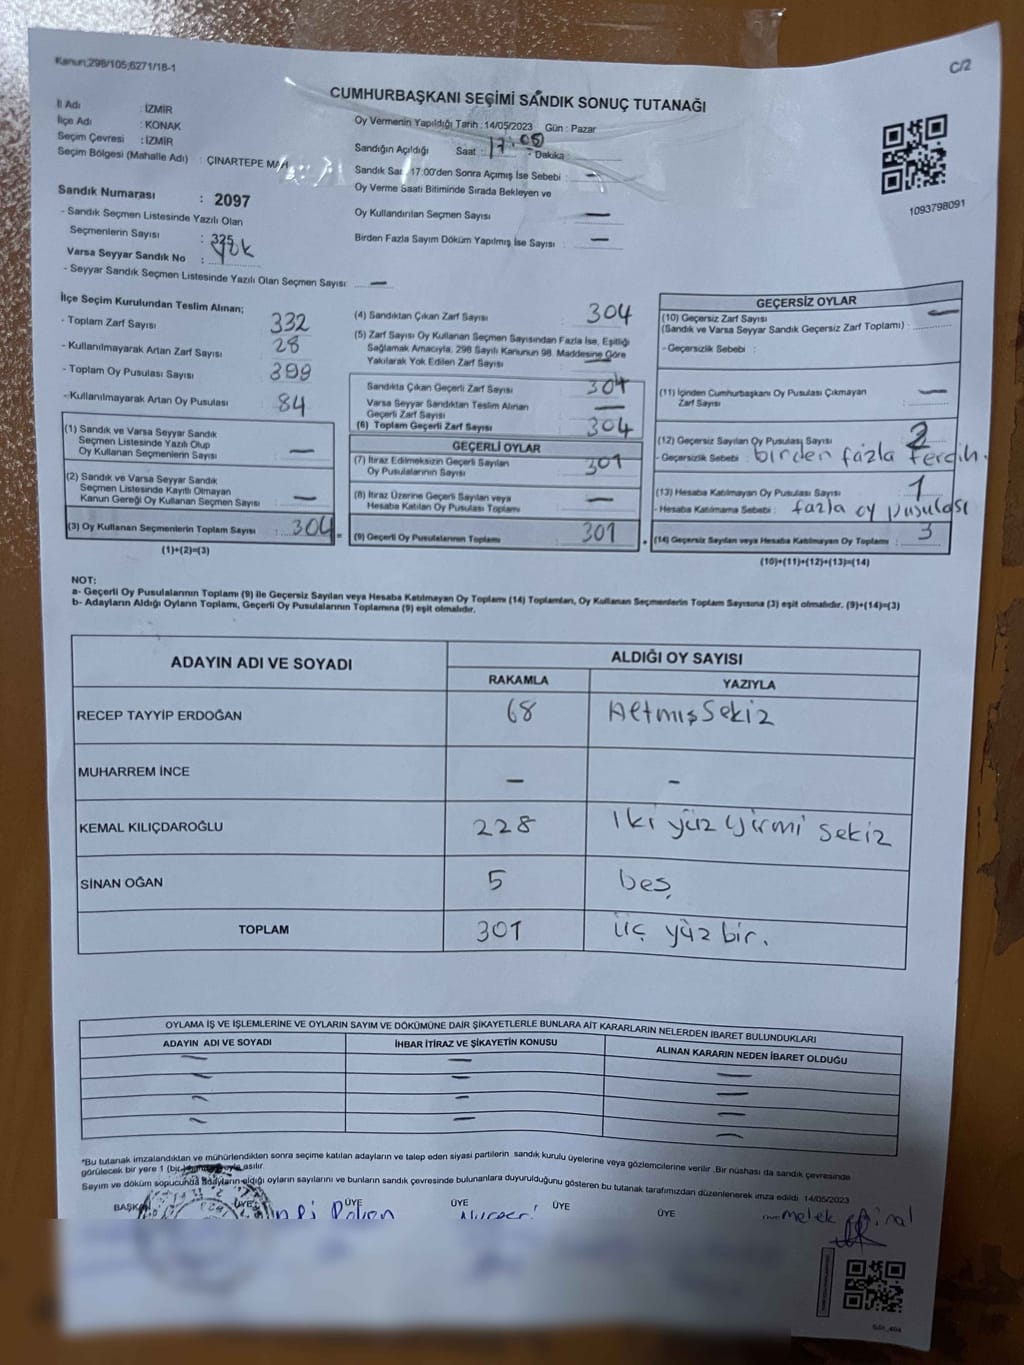 Kanun;298/105;6271/18-1
C/2
CUMHURBAŞKANI SEÇİMİ SANDIK SONUÇ TUTANAĞI
İl Adı : İZMİR
İlçe Adı : KONAK
Seçim Çevresi : İZMİR
Seçim Bölgesi (Mahalle Adı) : ÇINARTEPE MAH
Sandık Numarası : 2097
- Sandık Seçmen Listesinde Yazılı Olan
Seçmenlerin Sayısı : 325
Varsa Seyyar Sandık No : Yok
- Seyyar Sandık Seçmen Listesinde Yazılı Olan Seçmen Sayısı: —
Oy Vermenin Yapıldığı Tarih : 14/05/2023 Gün : Pazar
Sandığın Açıldığı Saat : 17:05 - Dakika
Sandık Saat 17:00'den Sonra Açımış İse Sebebi : —
Oy Verme Saati Bitiminde Sırada Bekleyen ve
Oy Kullandırılan Seçmen Sayısı —
Birden Fazla Sayım Döküm Yapılmış İse Sayısı : —
1093798091
İlçe Seçim Kurulundan Teslim Alınan;
- Toplam Zarf Sayısı 332
- Kullanılmayarak Artan Zarf Sayısı 28
- Toplam Oy Pusulası Sayısı 399
- Kullanılmayarak Artan Oy Pusulası 84
(1) Sandık ve Varsa Seyyar Sandık
Seçmen Listesinde Yazılı Olup
Oy Kullanan Seçmenlerin Sayısı —
(2) Sandık ve Varsa Seyyar Sandık
Seçmen Listesinde Kayıtlı Olmayan
Kanun Gereği Oy Kullanan Seçmen Sayısı —
(3) Oy Kullanan Seçmenlerin Toplam Sayısı : 304
(1)+(2)=(3)
(4) Sandıktan Çıkan Zarf Sayısı : 304
(5) Zarf Sayısı Oy Kullanan Seçmen Sayısından Fazla İse, Eşitliği
Sağlamak Amacıyla, 298 Sayılı Kanunun 98. Maddesine Göre
Yakılarak Yok Edilen Zarf Sayısı
Sandıkta Çıkan Geçerli Zarf Sayısı 304
Varsa Seyyar Sandıktan Teslim Alınan
Geçerli Zarf Sayısı —
(6) Toplam Geçerli Zarf Sayısı 304
GEÇERLİ OYLAR
(7) İtiraz Edilmeksizin Geçerli Sayılan
Oy Pusulalarının Sayısı : 301
(8) İtiraz Üzerine Geçerli Sayılan veya
Hesaba Katılan Oy Pusulaları Toplamı —
(9) Geçerli Oy Pusulalarının Toplamı 301
GEÇERSİZ OYLAR
(10) Geçersiz Zarf Sayısı —
(Sandık ve Varsa Seyyar Sandık Geçersiz Zarf Toplamı) :
- Geçersizlik Sebebi :
(11) İçinden Cumhurbaşkanı Oy Pusulası Çıkmayan —
Zarf Sayısı :
(12) Geçersiz Sayılan Oy Pusulası Sayısı 2
- Geçersizlik Sebebi : birden fazla tercih.
(13) Hesaba Katılmayan Oy Pusulası Sayısı : 1
- Hesaba Katılmama Sebebi : fazla oy pusulası
(14) Geçersiz Sayılan veya Hesaba Katılmayan Oy Toplamı : 3
(10)+(11)+(12)+(13)=(14)
NOT:
a- Geçerli Oy Pusulalarının Toplamı (9) ile Geçersiz Sayılan veya Hesaba Katılmayan Oy Toplamı (14) Toplamları, Oy Kullanan Seçmenlerin Toplam Sayısına (3) eşit olmalıdır. (9)+(14)=(3)
b- Adayların Aldığı Oyların Toplamı, Geçerli Oy Pusulalarının Toplamına (9) eşit olmalıdır.
ADAYIN ADI VE SOYADI ALDIĞI OY SAYISI
RAKAMLA YAZIYLA
RECEP TAYYİP ERDOĞAN 68 Altmış Sekiz
MUHARREM İNCE — -
KEMAL KILIÇDAROĞLU 228 İki yüz yirmi sekiz
SİNAN OĞAN 5 beş
TOPLAM 301 üç yüz bir.
OYLAMA İŞ VE İŞLEMLERİNE VE OYLARIN SAYIM VE DÖKÜMÜNE DAİR ŞİKAYETLERLE BUNLARA AİT KARARLARIN NELERDEN İBARET BULUNDUKLARI
ADAYIN ADI VE SOYADI İHBAR İTİRAZ VE ŞİKAYETİN KONUSU ALINAN KARARIN NEDEN İBARET OLDUĞU
— — —
— — —
— — —
— — —
*Bu tutanak imzalandıktan ve mühürlendikten sonra seçime katılan adayların ve talep eden siyasi partilerin sandık kurulu üyelerine veya gözlemcilerine verilir .Bir nüshası da sandık çevresinde
görülecek bir yere 1 (bir) asılır.
Sayım ve döküm sonucunda adayların aldığı oyların sayılarını ve bunların sandık çevresinde bulunanlara duyurulduğunu gösteren bu tutanak tarafımızdan düzenlenerek imza edildi. 14/05/2023
BAŞKAN ÜYE ÜYE ÜYE ÜYE ÜYE
melek